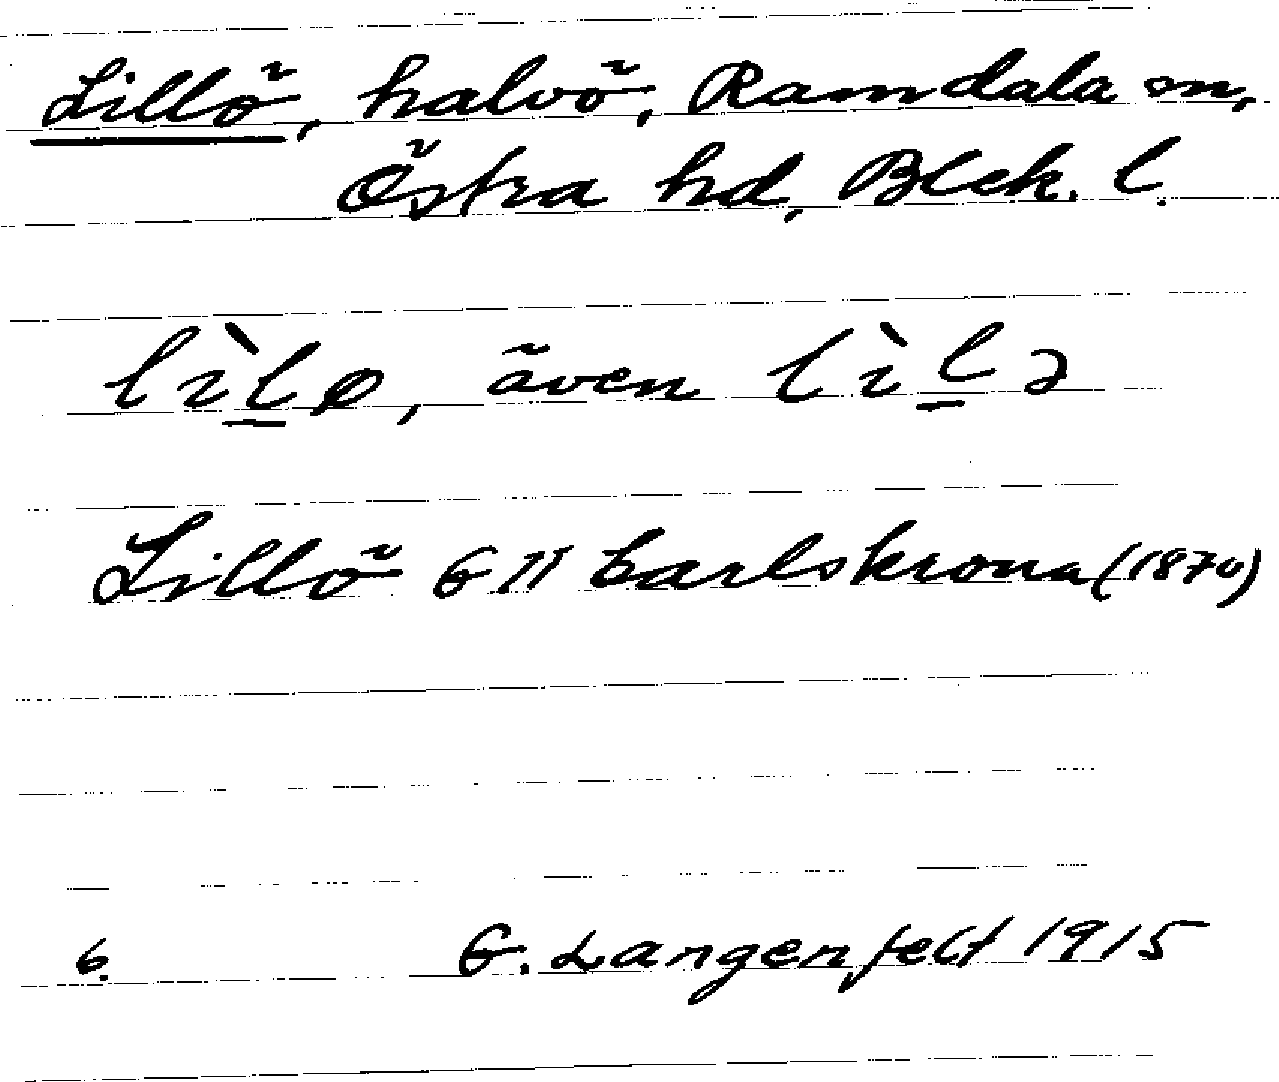 Lillö, halvö, Ramdala sn,
Östra hd, Blek. l.
lìlø, även lìlə
Lillö G II Carlskrona (1870)
6. G. Langenfelt 1915